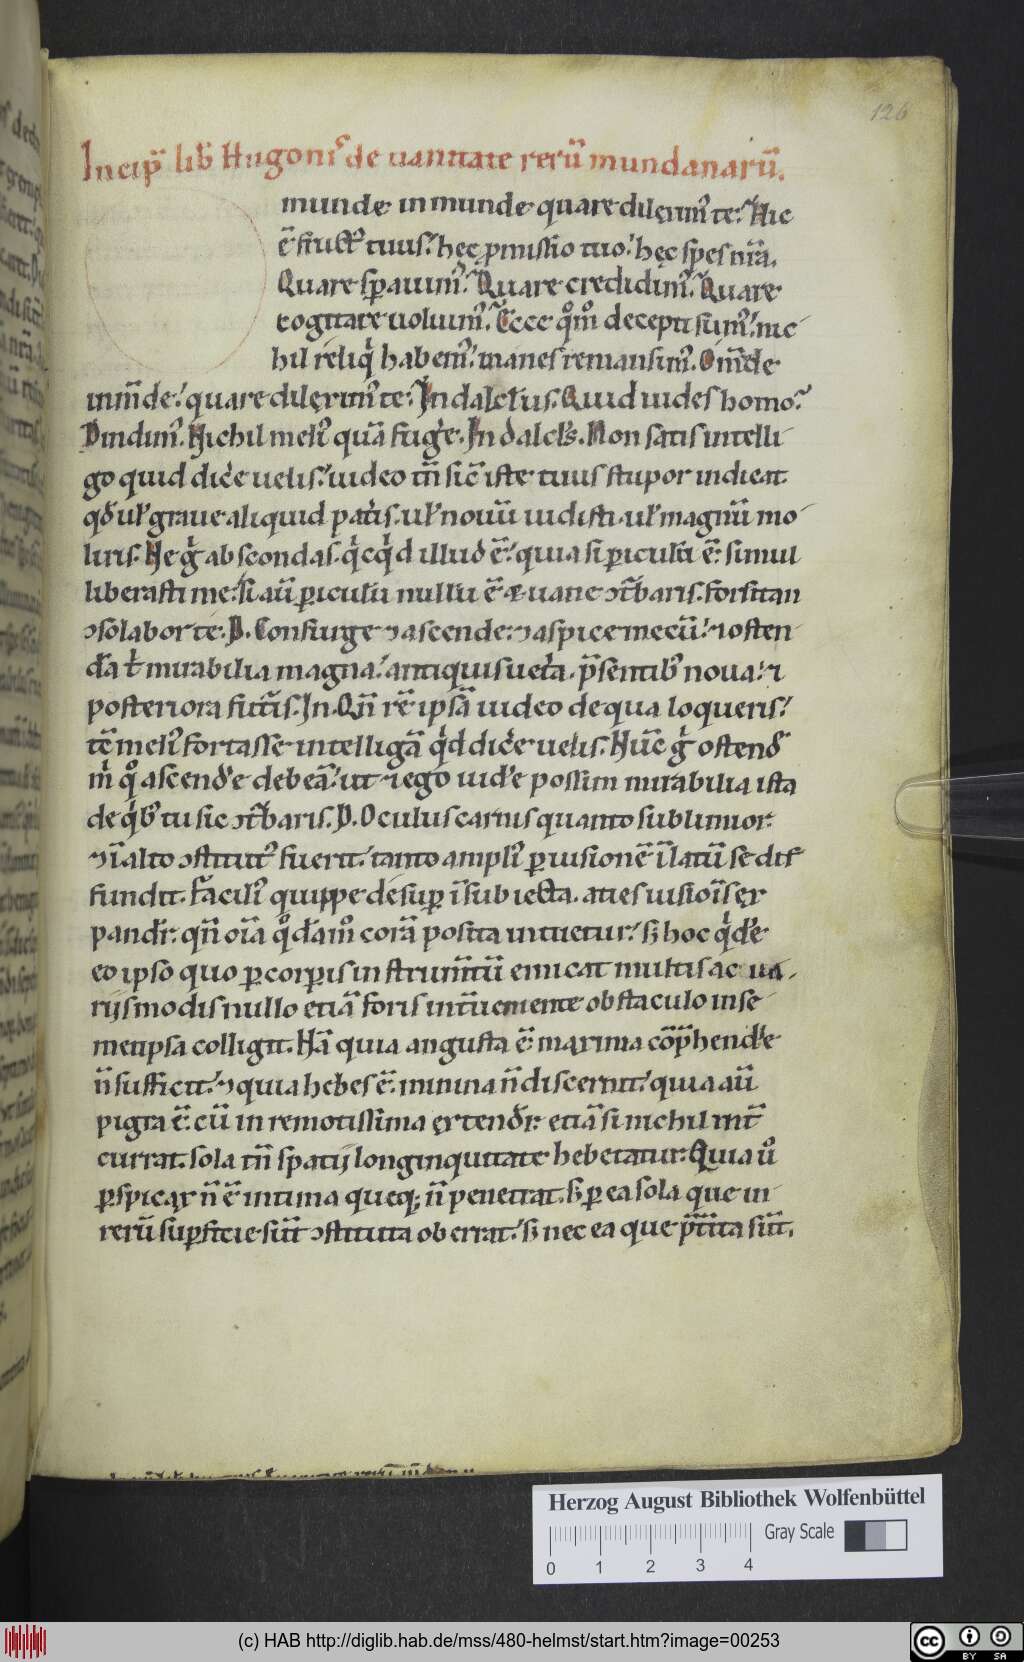 126
Incip̄ lib̄ Hugonis de uanitate rerū mundanarū.
munde inmunde quare dileximꝰ te? Hic
ē fructꝰ tuus? hęc ꝓmissio tua? hęc spes nr̄a.
Quare sꝑauimꝰ? Quare credidimꝰ? Quare
cogitare noluimꝰ? Ecce qͦmͦ decepti sumꝰ! nic
hil reliqͥ habemꝰ! inanes remansimꝰ. O mūde
inmūde! quare dileximꝰ te? Indalctus. Quid uides homo?
Dindimꝰ. Nichil meliꝰ quā fuge. In dalcts. Non satis intelli
go quid dice uelis! uideo tn̄ sic̄ iste tuus stupor indicat
qđ ul̄ graue aliquid patis. ul̄ nouū uidisti. ul̄ magnū mo
liris. Ne gͦ abscondas. qͥcqͥd illud ē! quia si ꝑiculū ē simul
liberasti me. si aū ꝑiculū nullū ē & uane ↄt̄baris. forsitan
ↄsolabor te. D. Consurge ⁊ ascende. ⁊ aspice mecū! ⁊ osten
dā t̄ mirabilia magna! antiquis ueta. p̄sentibꝰ noua! ⁊
posteriora futis. In. Qn̄ rē ipsā uideo de qua loqueris!
tc̄ meliꝰ fortasse intelligā qͥd dice uelis. Nūc gͦ ostend
m̄ qͦ ascendere debeā! ut ⁊ ego uidere possim mirabilia ista
de qͥbꝰ tu sic ↄt̄baris. D. Oculus carnis quanto sublimior
⁊ ī alto ↄstitutꝰ fuerit! tanto ampliꝰ ꝑ uisionē ī latū se dif
fundit. Faciliꝰ quippe desuꝑ ī subiecta. acies uisiōis ex
pandit. qn̄ oīa qͦdāmͦ corā posita intuetur! sꝫ hoc qͥdē
eo ipso quo ꝑ corꝑis instrumtū emicat multis ac ua
rijs modis nullo etiā foris int̄ueniente obstaculo in se
metipsa colligit. Nā quia angusta ē. maxima cōp̄hendere
n̄ sufficit! ⁊ quia hebes ē. minima n̄ discernit! quia aū
pigra ē. cū in remotissima extendit etiā si nichil int̄
currat. sola tn̄ spatij longinquitate hebetatur. Quia uͦ
ꝑspicax n̄ ē intima queqꝫ n̄ penetrat. sꝫ ꝑ ea sola que in
rerū suꝑficie sūt ↄstituta oberrat! sꝫ nec ea que p̄tita sūt.
Herzog August Bibliothek Wolfenbüttel
Gray Scale
0 1 2 3 4
(c) HAB http://diglib.hab.de/mss/480-helmst/start.htm?image=00253
cc BY SA